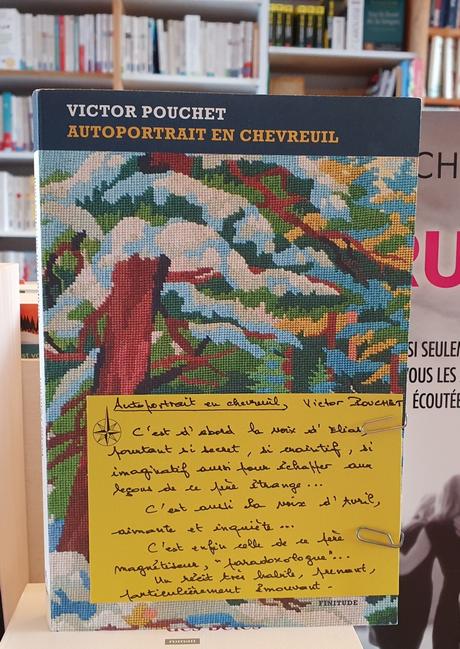 VICTOR POUCHET
AUTOPORTRAIT EN CHEVREUIL
CH
RU
SI SEULEM
TOUS LES
ÉCOUTÉE
Autoportrait en chevreuil, Victor POUCHET
C'est d'abord la voix d'Elias,
pourtant si secret, si craintif, si
imaginatif aussi pour échapper aux
leçons de ce père étrange...
C'est aussi la voix d'Avril,
aimante et inquiète...
C'est enfin celle de ce père
magnétiseur, "paradoxologue"...
Un récit très habile, prenant,
particulièrement émouvant.
FINITUDE
roman